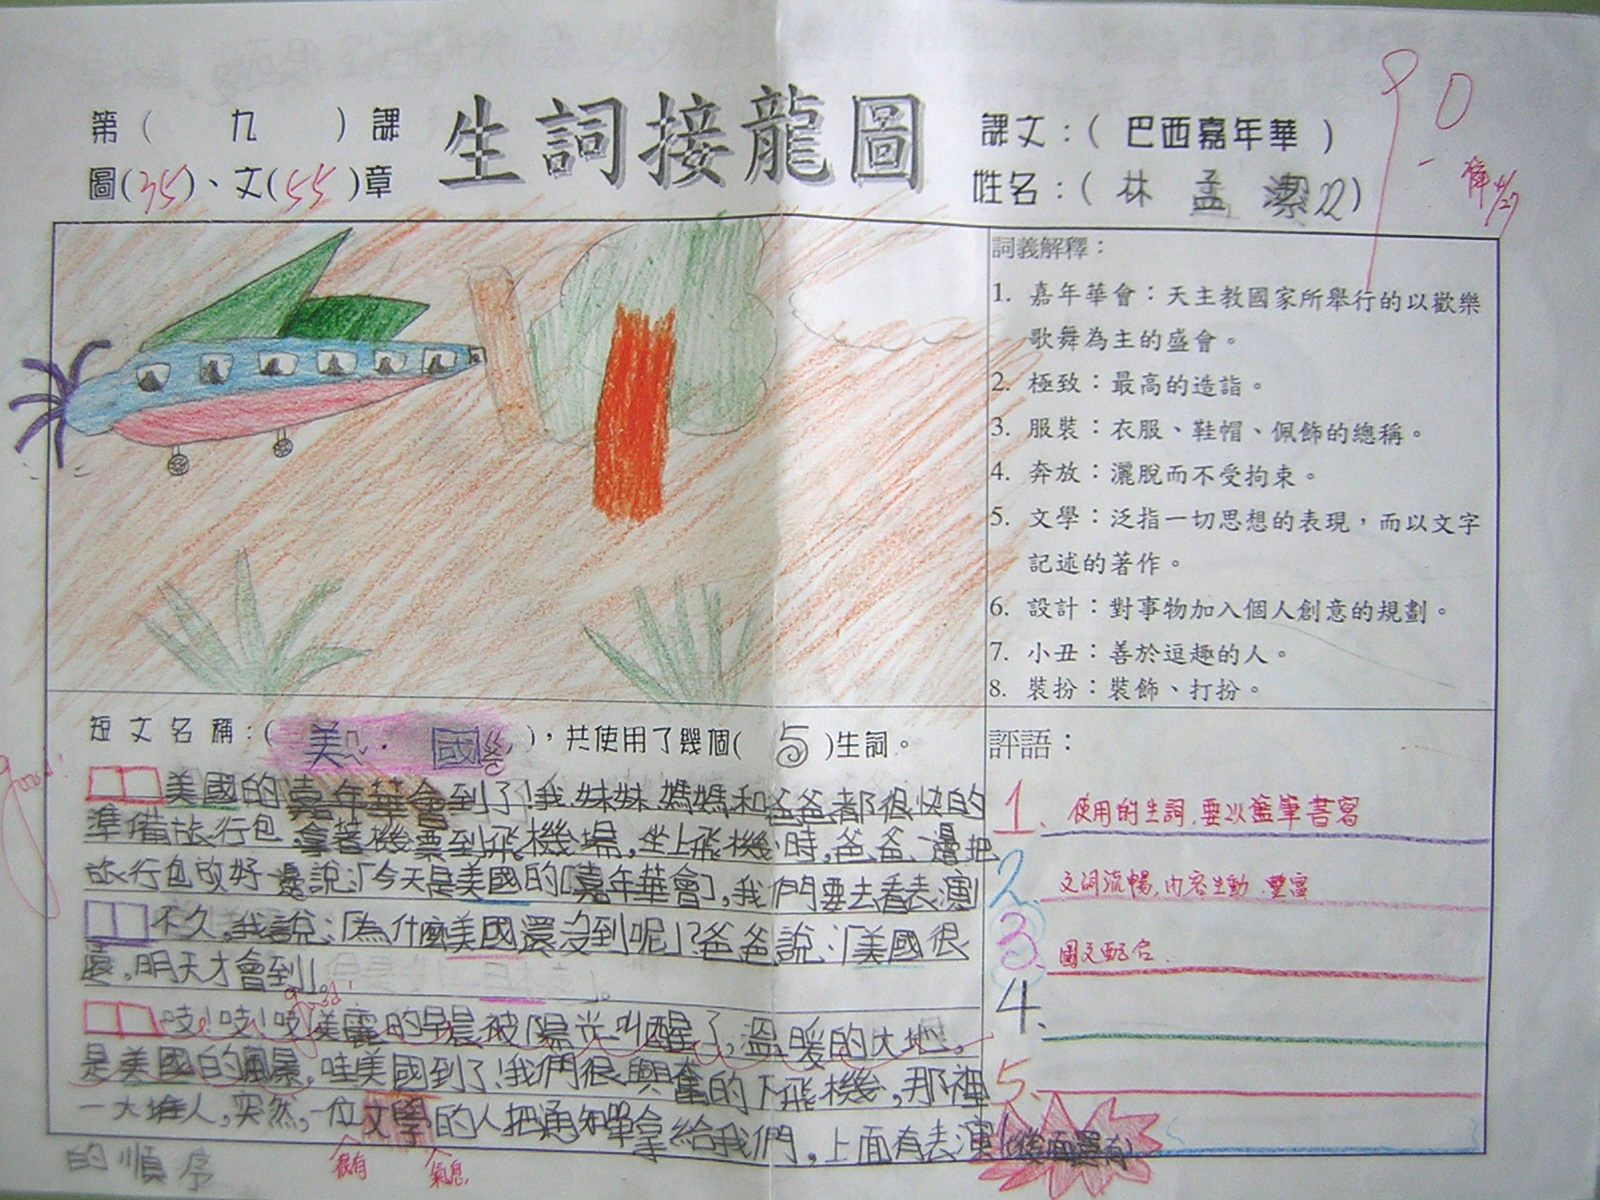 生詞接龍圖
第( 九 )課
圖(35)、文(55)章
課文:( 巴西嘉年華 )
姓名:( 林 孟 潔 22)
90
4/27
詞義解釋:
1. 嘉年華會:天主教國家所舉行的以歡樂
歌舞為主的盛會。
2. 極致:最高的造詣。
3. 服裝:衣服、鞋帽、佩飾的總稱。
4. 奔放:灑脫而不受拘束。
5. 文學:泛指一切思想的表現,而以文字
記述的著作。
6. 設計:對事物加入個人創意的規劃。
7. 小丑:善於逗趣的人。
8. 裝扮:裝飾、打扮。
短文名稱:( 美 國 ),共使用了幾個( 5 )生詞。
good!
美國的嘉年華會到了!我.妹妹.媽媽和爸爸都很快的
準備旅行包.拿著機票到飛機場,坐上飛機時,爸爸、邊把
旅行包放好 邊說:「今天是美國的[嘉年華會],我們要去看表演」
不久,我說:「為什麼美國還沒到呢」?爸爸說:「美國很
遠,明天才會到」。
good!
吱!吱!吱!美麗的早晨被陽光叫醒了,溫暖的大地,
是美國的風景,哇美國到了!我們很興奮的下飛機,那裡
一大堆人,突然,一位文學的人把通知單拿給我們,上面有表演(後面還有)
很有 氣息
的順序
評語:
1. 使用的生詞,要以藍筆書寫
2. 文詞流暢,內容生動、豐富
3. 圖文配合.
4.
5.